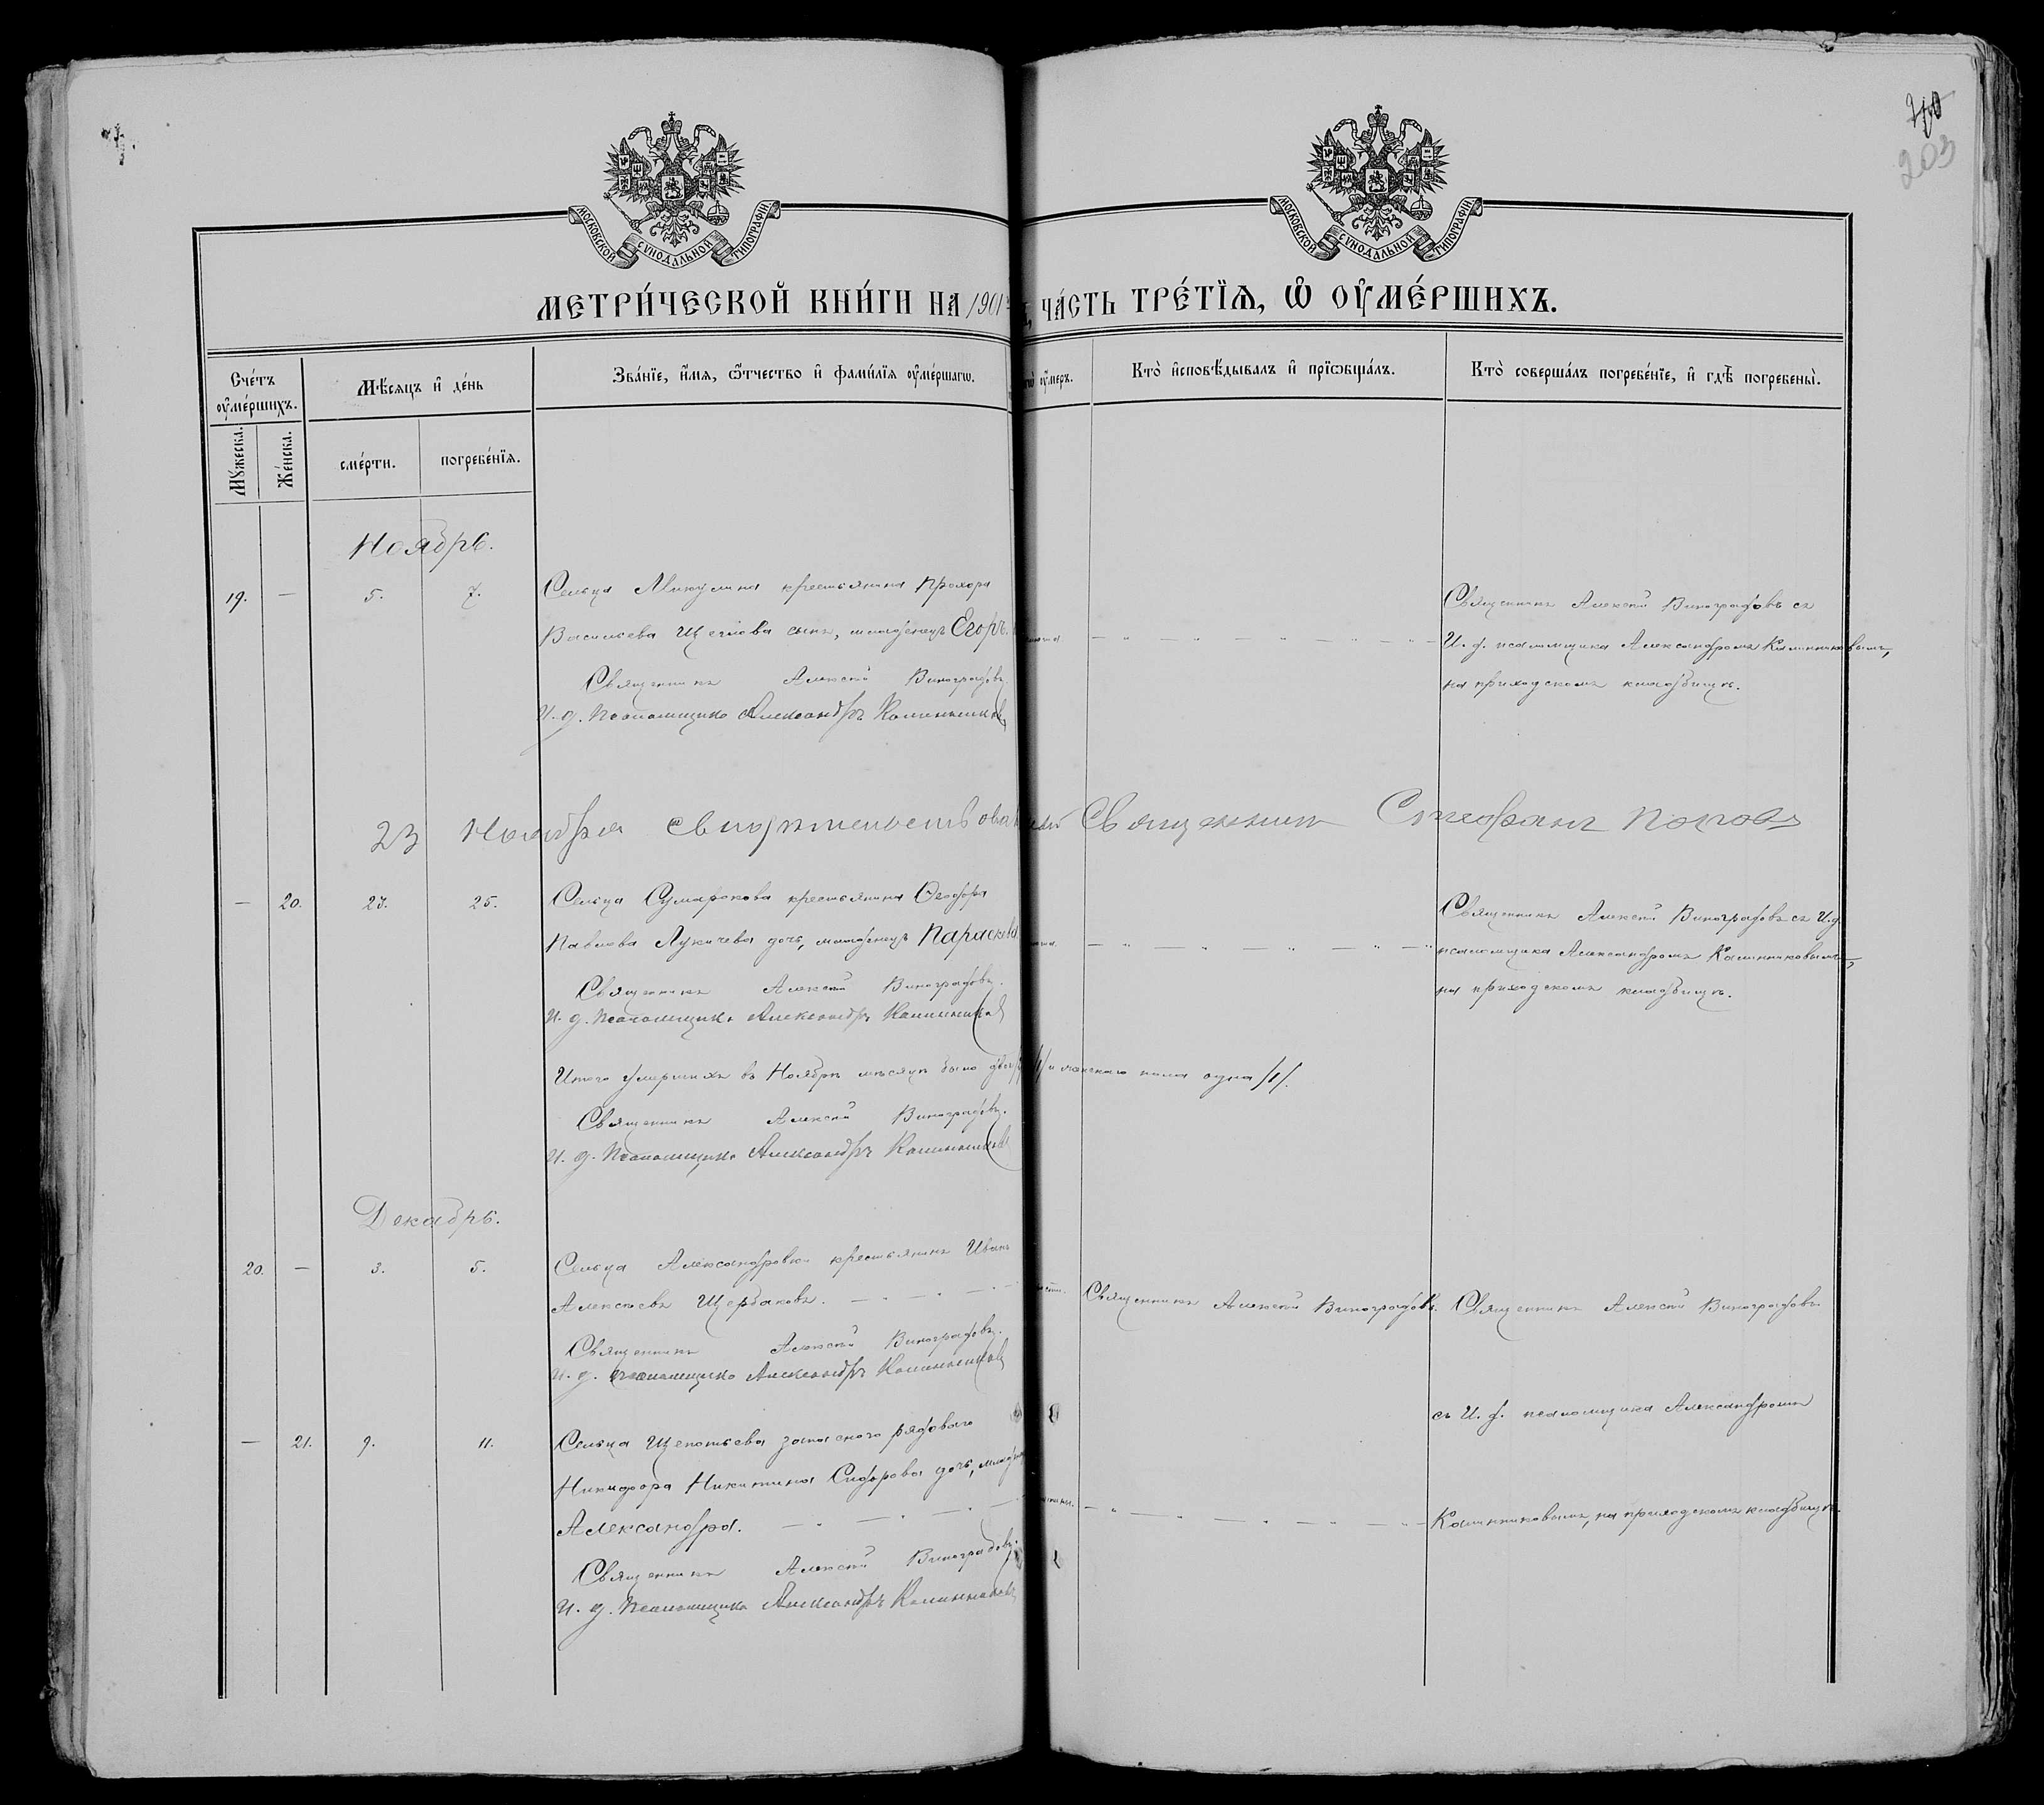 210
203
МОСКОВСКОЙ СУНОДАЛЬНОЙ ТИПОГРАФІИ
МОСКОВСКОЙ СУНОДАЛЬНОЙ ТИПОГРАФІИ
МЕТРИ́ЧЕСКОЙ КНИ́ГИ НА 1901 ЧА́СТЬ ТРЕ́ТЇѦ, Ѡ҆ ОУ҆МЕ́РШИХЪ.
Сче́тъ оу҆ме́ршихъ.
Мѣ́сяцъ и҆ де́нь
Зва́нїе, и҆́мя, ѻ҆́тчество и҆ фами́лїя оу҆ме́ршагѡ.
оу҆́меръ.
Кто̀ и҆сповѣ́дывалъ и҆ прїѻбща́лъ.
Кто̀ соверша́лъ погребе́нїе, и҆ гдѣ̀ погребены̀.
Мꙋ́жеска.
Же́нска.
сме́рти.
погребе́нїя.
Ноябрь.
19. — 5. 7. Сельца Микулина крестьянина Прохора
Васильева Щеглова сынъ, младенецъ Егоръ.
Священникъ Алексій Виноградовъ
И. д. Псаломщика Александръ Калинниковъ
Священникъ Алексій Виноградовъ съ
И. д. псаломщика Александромъ Калинниковымъ,
на приходскомъ кладбищѣ.
23 Ноября свидѣтельствовалъ Священникъ Стефанъ Поповъ
— 20. 23. 25. Сельца Сумарокова крестьянина Ѳеодора
Павлова Лукичева дочь, младенецъ Параскева
Священникъ Алексій Виноградовъ.
И. д. Псаломщика Александръ Калинниковъ
Священникъ Алексій Виноградовъ съ И. д.
псаломщика Александромъ Калинниковымъ,
на приходскомъ кладбищѣ.
Итого умершихъ въ Ноябрѣ мѣсяцѣ было двое женскаго пола одна /1/.
Священникъ Алексій Виноградовъ.
И. д. Псаломщика Александръ Калинниковъ
Декабрь.
20. — 3. 5. Сельца Александровки крестьянинъ Иванъ
Алексѣевъ Щербаковъ.
Священникъ Алексій Виноградовъ.
И. д. псаломщика Александръ Калинниковъ
Священникъ Алексій Виноградовъ.
Священникъ Алексій Виноградовъ
— 21. 9. 11. Сельца Щепотьева запаснаго рядоваго
Никифора Никитина Сидорова дочь,
Александра.
Священникъ Алексій Виноградовъ.
И. д. Псаломщика Александръ Калинниковъ
съ И. д. псаломщика Александромъ
Калинниковымъ, на приходскомъ кладбищѣ.